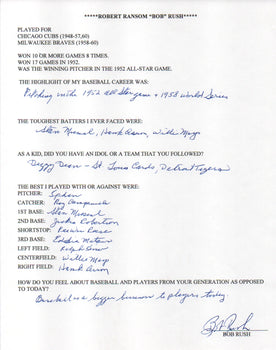 *****ROBERT RANSOM "BOB" RUSH*****
PLAYED FOR
CHICAGO CUBS (1948-57,60)
MILWAUKEE BRAVES (1958-60)
WON 10 OR MORE GAMES 8 TIMES.
WON 17 GAMES IN 1952.
WAS THE WINNING PITCHER IN THE 1952 ALL-STAR GAME.
THE HIGHLIGHT OF MY BASEBALL CAREER WAS:
Pitching in the 1952 All Star game + 1958 World Series
THE TOUGHEST BATTERS I EVER FACED WERE:
Stan Musial, Hank Aaron, Willie Mays
AS A KID, DID YOU HAVE AN IDOL OR A TEAM THAT YOU FOLLOWED?
Dizzy Dean - St. Louis Cards, Detroit Tigers
THE BEST I PLAYED WITH OR AGAINST WERE:
PITCHER: Spahn
CATCHER: Roy Campanella
1ST BASE: Stan Musial
2ND BASE: Jackie Robertson
SHORTSTOP: Peewee Reese
3RD BASE: Eddie Matews
LEFT FIELD: Ralph Kiner
CENTERFIELD: Willie Mays
RIGHT FIELD: Hank Aaron
HOW DO YOU FEEL ABOUT BASEBALL AND PLAYERS FROM YOUR GENERATION AS OPPOSED
TO TODAY?
Baseball is a bigger business to players today.
Bob Rush
BOB RUSH